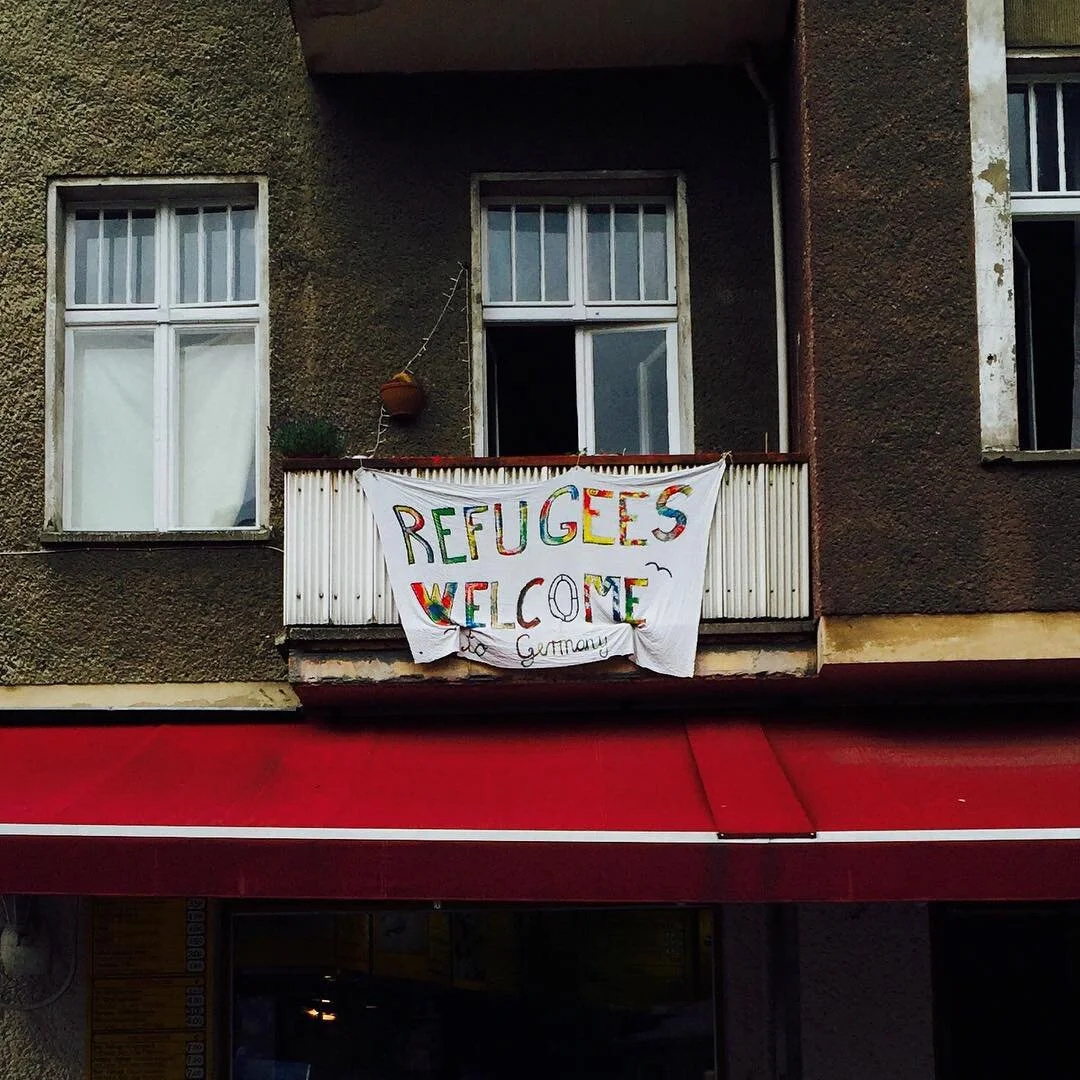 REFUGEES
WELCOME
to Germany